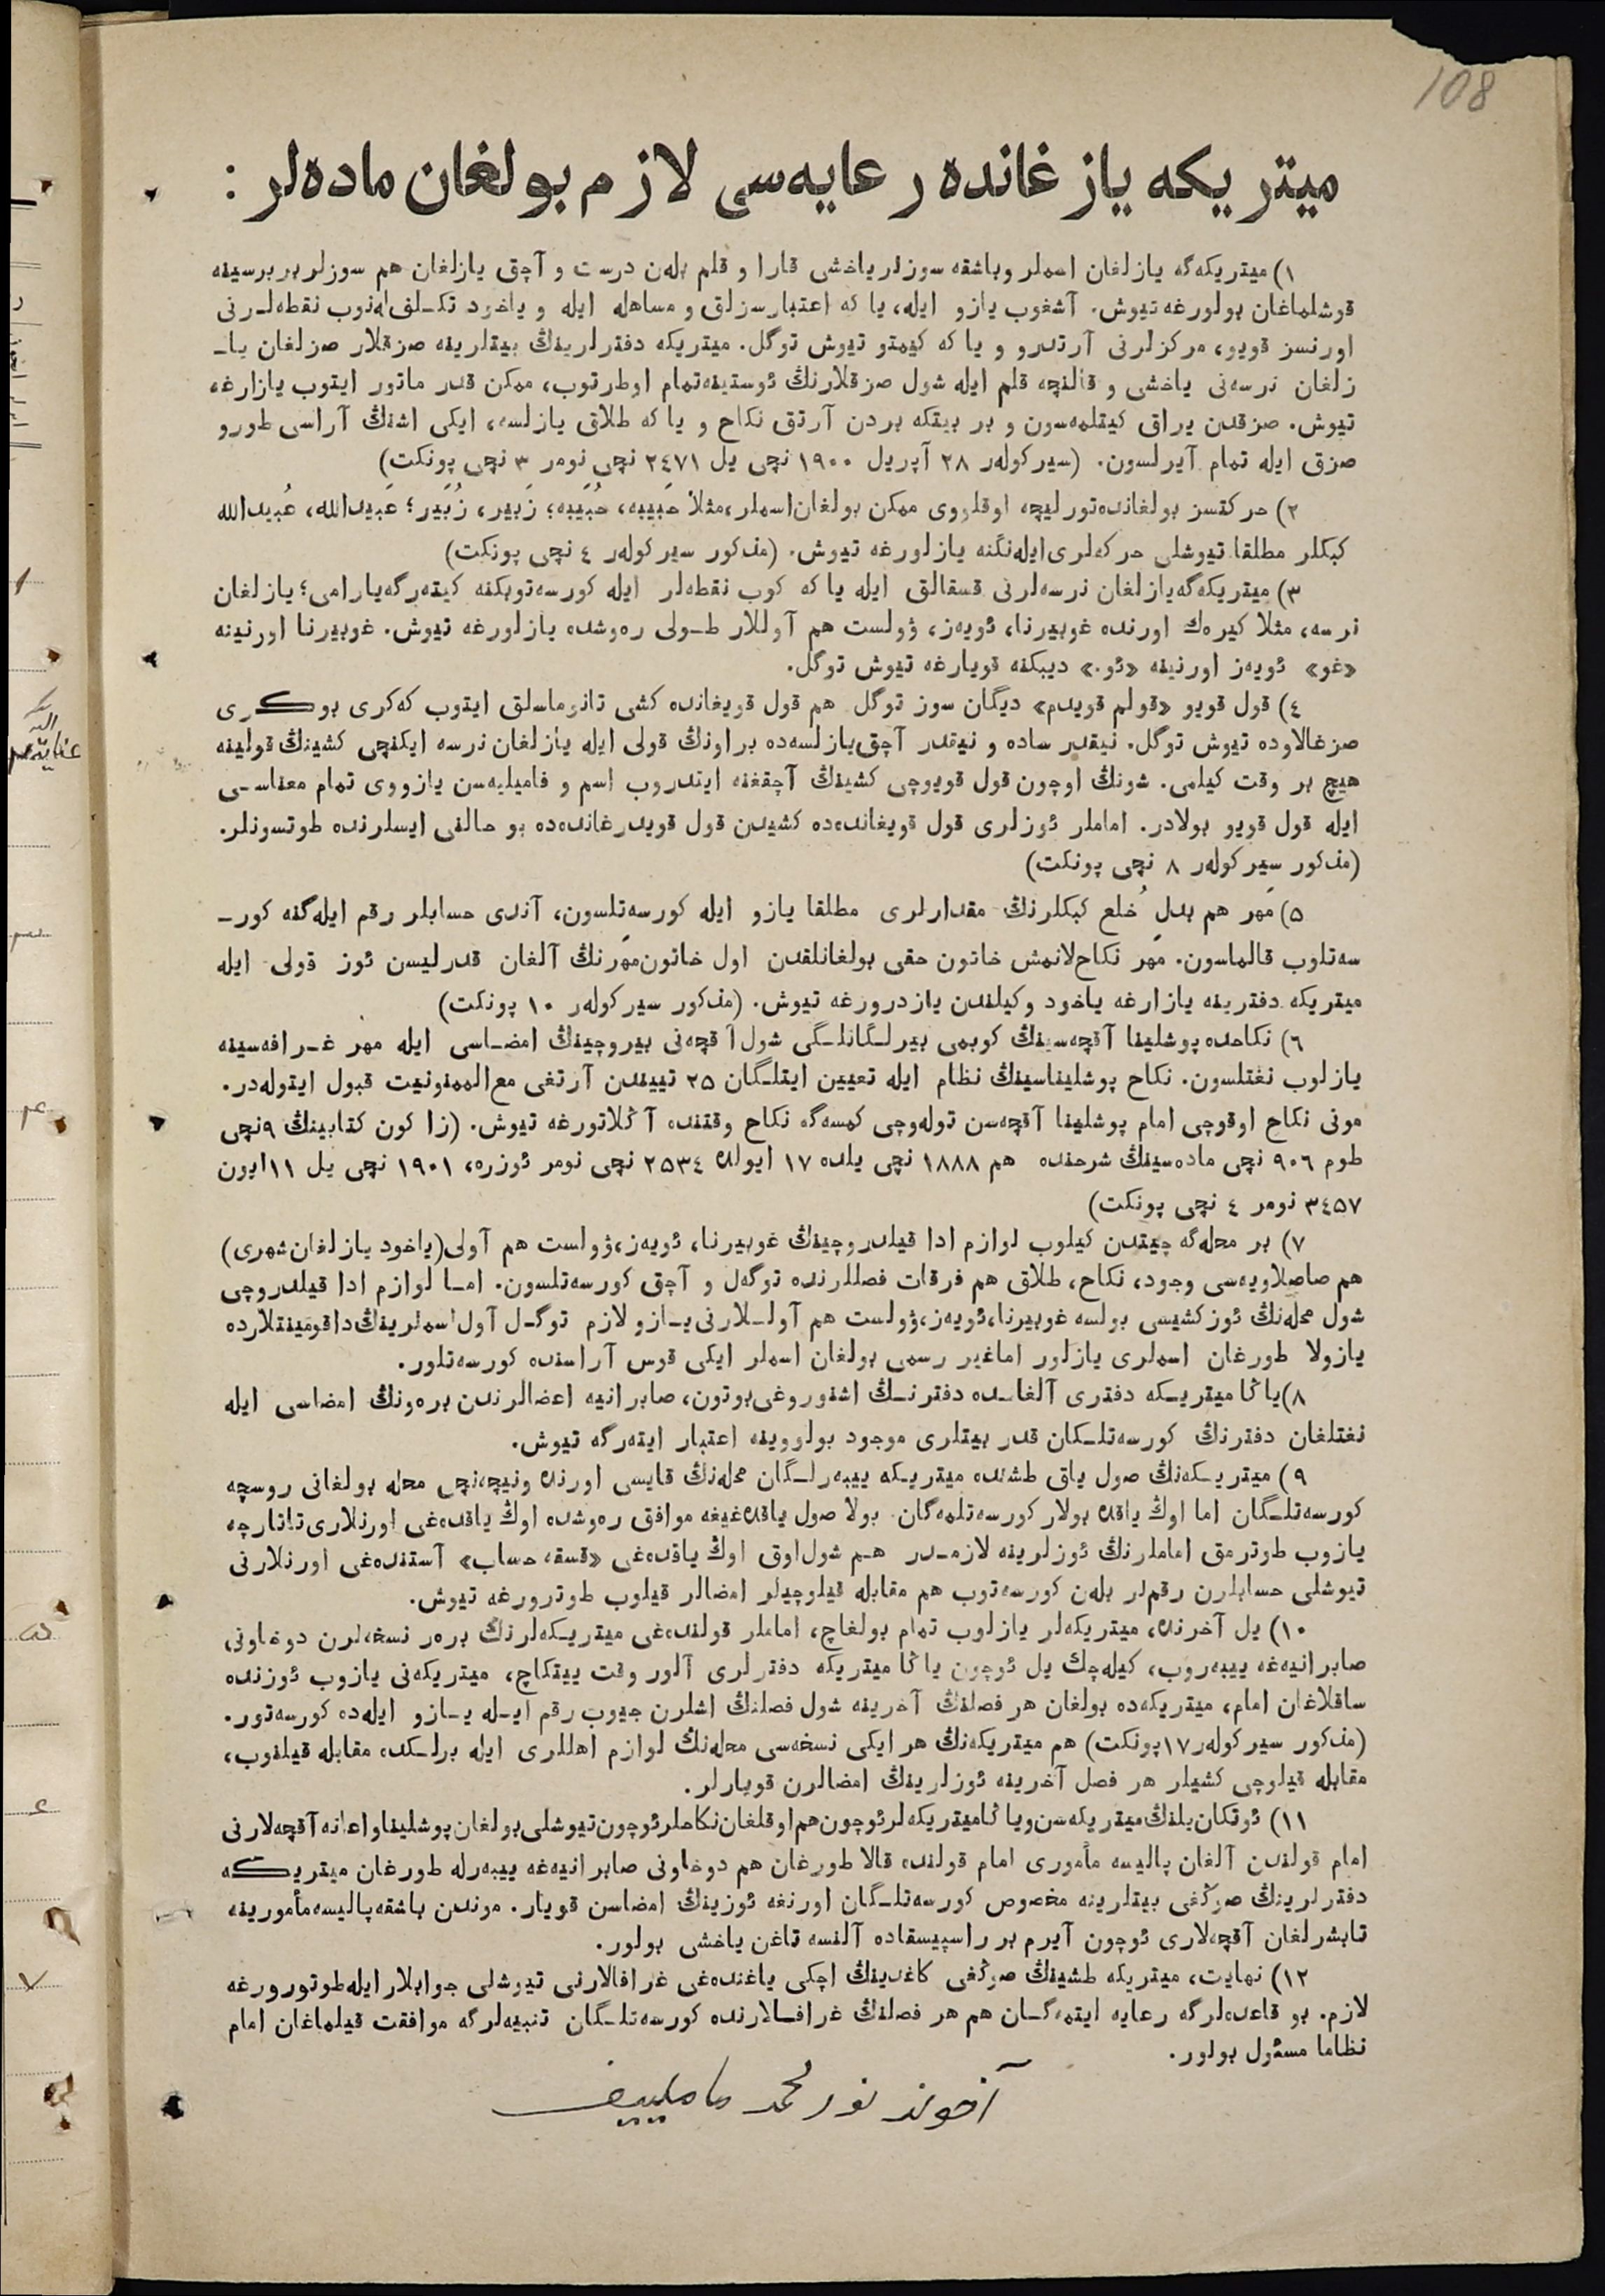 108
ميتريكه يازغانده رعايه‌سى لازم بولغان ماده‌لر :
١) ميتريكه‌گه يازلغان اسملر وباشقه سوزلر ياخشى قارا و قلم بله‌ن درست و آچق يازلغان هم سوزلر بر برسينه
قوشلماغان بولورغه تيوش. آشغوب يازو ايله، يا كه اعتبارسزلق و مساهله ايله و ياخود تكـلف له‌نوب نقطه‌لـرنى
اورنسز قويو، مركزلرنى آرتدرو و يا كه كيمتو تيوش توگل. ميتريكه دفترلرينڭ بيتلرينه صزقلار صزلغان يا-
زلغان نرسه‌نى ياخشى و قالنچه قلم ايله شول صزقلارنڭ ئوستينه تمام اوطرتوب، ممكن قدر ماتور ايتوب يازارغه
تيوش. صزقدن يراق كيتلمه‌سون و بر بيتكه بردن آرتق نكاح و يا كه طلاق يازلسه، ايكى اشنڭ آراسى طورو
صزق ايله تمام آيرلسون. (سيركولەر ٢٨ آپريل ١٩٠٠ نچى يل ٢٤٧١ نچى نومر ٣ نچى پونكت)
٢) حركتسز بولغانده تورليچه اوقلووى ممكن بولغان اسملر، مثلا حَبيبه، حُبَيبه؛ زَبير، زُبَير؛ عَبيدالله، عُبيدالله
كبكلر مطلقا تيوشلى حركه‌لرى ايله‌نگنه يازلورغه تيوش. (مذكور سيركولەر ٤ نچى پونكت)
٣) ميتريكه‌گه يازلغان نرسه‌لرنى قسقالق ايله يا كه كوب نقطه‌لر ايله كورسه‌توبكنه كيته‌رگه يارامى؛ يازلغان
نرسه، مثلا كيره‌ك اورنده غوبيرنا، ئويه‌ز، ۋولست هم آوللار طـولى ره‌وشده يازلورغه تيوش. غوبيرنا اورنينه
«غو» ئويه‌ز اورنينه «ئو.» ديبكنه قويارغه تيوش توگل.
٤) قول قويو «قولم قويدم» ديگان سوز توگل هم قول قويغانده كشى تانوماسلق ايتوب كه‌كرى بوكـرى
صزغالاوده تيوش توگل. نيقدر ساده و نيقدر آچق يازلسه‌ده براونڭ قولى ايله يازلغان نرسه ايكنچى كشينڭ قولينه
هيچ بر وقت كيلمى. شونڭ اوچون قول قويوچى كشينڭ آچقغنه ايتدروب اسم و فاميليه‌سن يازووى تمام معناسـى
ايله قول قويو بولادر. اماملر ئوزلرى قول قويغانده‌ده كشيدن قول قويدرغانده‌ده بو حالنى ايسلرنده طوتسونلر.
(مذكور سيركولەر ٨ نچى پونكت)
٥) مَهر هم بدلِ خُلع كبكلرنڭ مقدارلرى مطلقا يازو ايله كورسه‌تلسون، آندى حسابلر رقم ايله‌گنه كور-
سه‌تلوب قالماسون. مَهر نكاح‌لانمش خاتون حقى بولغانلقدن اول خاتون مَهرنڭ آلغان قدرليسن ئوز قولى ايله
ميتريكه دفترينه يازارغه ياخود وكيلندن يازدرورغه تيوش. (مذكور سيركولەر ١٠ پونكت)
٦) نكاحده پوشلينا آقچه‌سينڭ كوبمى بيرلـگانلـگى شول آقچه‌نى بيروچينڭ امضـاسى ايله مهر غـرافه‌سينه
يازلوب نغتلسون. نكاح پوشليناسينڭ نظام ايله تعيين ايتلـگان ٢٥ تييندن آرتغى مع‌الممنونيت قبول ايتوله‌در.
مونى نكاح اوقوچى امام پوشلينا آقچه‌سن توله‌وچى كمسه‌گه نكاح وقتنده آڭلاتورغه تيوش. (زاكون كتابينڭ ٩نچى
طوم ٩٠٦ نچى ماده‌سينڭ شرحنده هم ١٨٨٨ نچى يلده ١٧ ايولده ٢٥٣٤ نچى نومر ئوزره، ١٩٠١ نچى يل ١١ايون
٣٤٥٧ نومر ٤ نچى پونكت)
٧) بر محله‌گه چيتدن كيلوب لوازم ادا قيلدروچينڭ غوبيرنا، ئويه‌ز، ۋولست هم آولى (ياخود يازلغان شهرى)
هم صاصلاويه‌سى وجود، نكاح، طلاق هم فرقات فصللرنده توگه‌ل و آچق كورسه‌تلسون. امـا لوازم ادا قيلدروچى
شول محله‌نڭ ئوز كشيسى بولسه غوبيرنا، ئويه‌ز، ۋولست هم آولـلارنى يـازو لازم توگـل آول اسملرينڭ داقومينتلارده
يازولا طورغان اسملرى يازلور اماغير رسمى بولغان اسملر ايكى قوس آراسنده كورسه‌تلور.
٨) ياڭا ميتريـكه دفترى آلغانـده دفترنـڭ اشنوروغى بوتون، صابرانيه اعضالرندن بره‌ونڭ امضاسى ايله
نغتلغان دفترنڭ كورسه‌تلـكان قدر بيتلرى موجود بولووينه اعتبار ايته‌رگه تيوش.
٩) ميتريـكه‌نڭ صول ياق طشنده ميتريـكه ييبه‌رلـگان محله‌نڭ قايسى اورنده ونيچه‌نچى محله بولغانى روسچه
كورسه‌تلـگان اما اوڭ ياقده بولار كورسه‌تلمه‌گان. بولا صول ياقده‌غيغه موافق ره‌وشده اوڭ ياقده‌غى اورنلارى تاتارچه
يازوب طوترمق اماملرنڭ ئوزلرينه لازمـدر هـم شول اوق اوڭ ياقده‌غى «قسقه حساب» آستنده‌غى اورنلارنى
تيوشلى حسابلرن رقم‌لر بله‌ن كورسه‌توب هم مقابله قيلوچيلر امضالر قيلوب طوترورغه تيوش.
١٠) يل آخرنده، ميتريكه‌لر يازلوب تمام بولغاچ، اماملر قولنده‌غى ميتريـكه‌لرنڭ بره‌ر نسخه‌لرن دوخاونى
صابرانيه‌غه ييبه‌روب، كيله‌چك يل ئوچون ياڭا ميتريكه دفترلرى آلور وقت ييتكاچ، ميتريكه‌نى يازوب ئوزنده
ساقلاغان امام، ميتريكه‌ده بولغان هر فصلنڭ آخرينه شول فصلنڭ اشلرن جيوب رقم ايـله يـازو ايله‌ده كورسه‌تور.
(مذكور سيركولەر ١٧پونكت) هم ميتريكه‌نڭ هر ايكى نسخه‌سى محله‌نڭ لوازم اهللرى ايله برلـكده مقابله قيلنوب،
مقابله قيلوچى كشيلر هر فصل آخرينه ئوزلرينڭ امضالرن قويارلر.
١١) ئوتكان يلنڭ ميتريكه‌سن وياڭا ميتريكه‌لر ئوچون هم اوقلغان نكاحلر ئوچون تيوشلى بولغان پوشلينا و اعانه آقچه‌لارنى
امام قولندن آلغان پاليسه مأمورى امام قولنده قالا طورغان هم دوخاونى صابرانيه‌غه ييبه‌رله طورغان ميتريـكه
دفترلرينڭ صوڭغى بيتلرينه مخصوص كورسه‌تلـگان اورنغه ئوزينڭ امضاسن قويار. موندن باشقه پاليسه مأمورينه
تابشرلغان آقچه‌لارى ئوچون آيرم بر راسپيسقاده آلنسه تاغن ياخشى بولور.
١٢) نهايت، ميتريكه طشينڭ صوڭغى كاغدينڭ اچكى ياغنده‌غى غرافالارنى تيوشلى جوابلار ايله طوتورورغه
لازم. بو قاعده‌لرگه رعايه ايتمه‌گـان هم هر فصلنڭ غرافـالارنده كورسه‌تلـگان تنبيه‌لرگه موافقت قيلماغان امام
نظاما مسئول بولور.
آخوند نورمحمد ماملييف